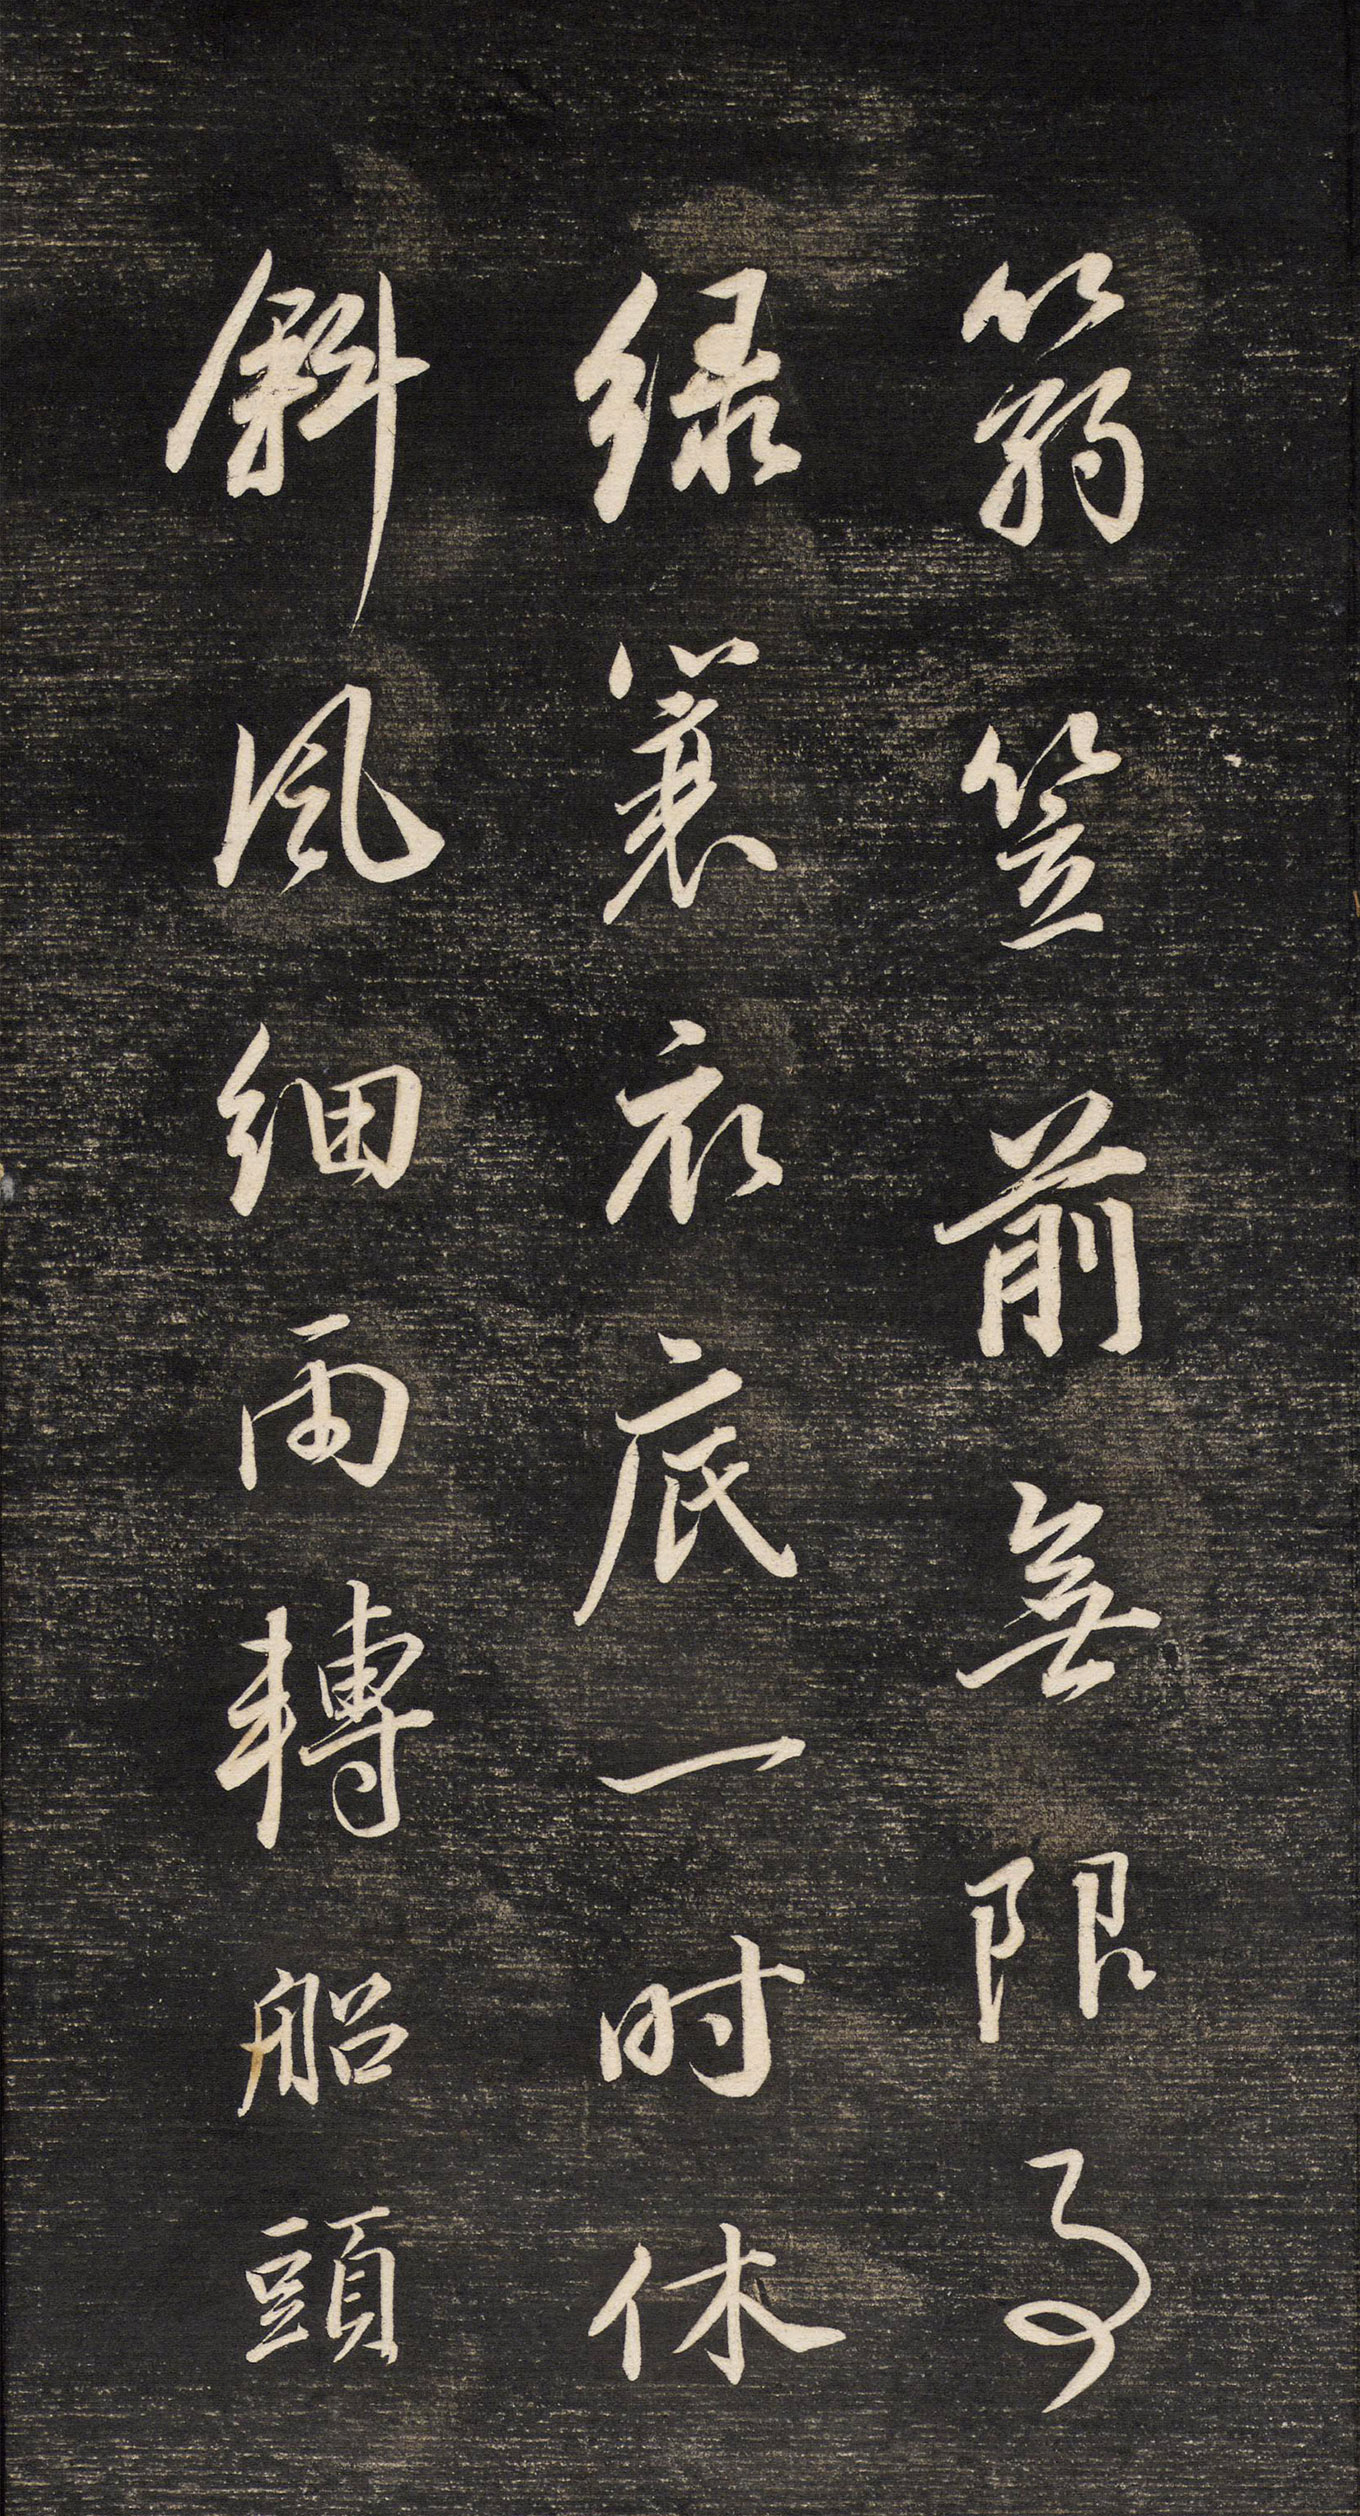 篛笠前無限事
緑蓑衣底一时休
斜風細雨轉船頭